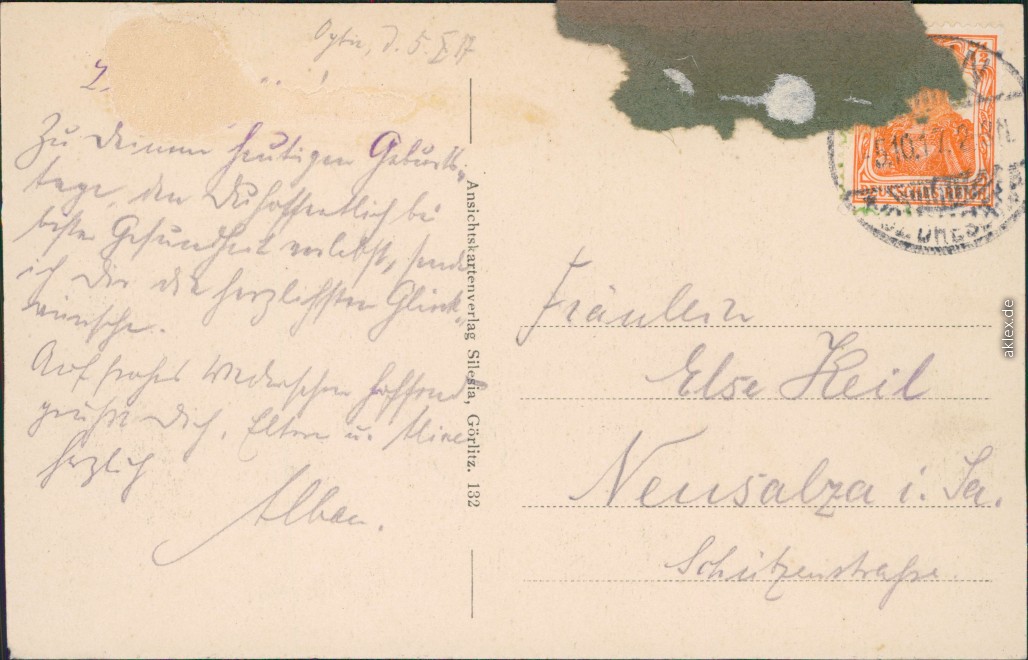 Oybin, d. 5. X. 17
L.
Zu Deinem heutigen Geburts-
tage, den Du hoffentlich bei
bester Gesundheit verlebst, sende
ich Dir die herzlichsten Glück-
wünsche.
Auf frohes Wiedersehen hoffend
grüßt Dich, Eltern u.
herzlich
Alban.
Ansichtskartenverlag Silesia, Görlitz. 132
5.10.17.
Fräulein
Else Keil
Neusalza i. Sa.
Schützenstraße.
aklex.de